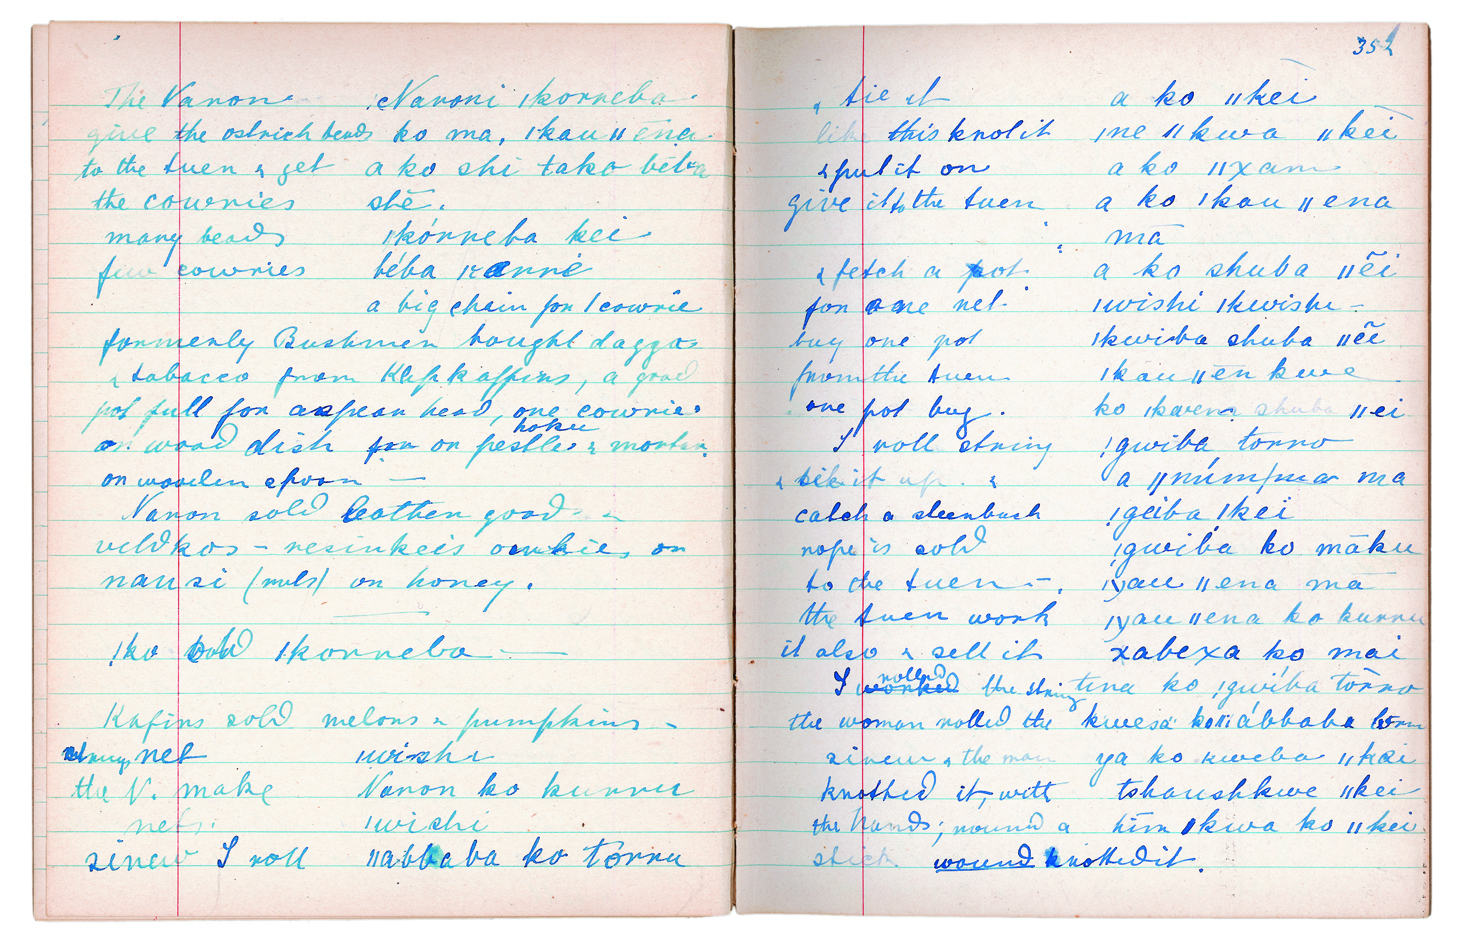 The Naron Naroni ǀkorreba
give the ostrich beads ko ma, ǀkau ǁēna
to the tuen & get a ko shi tako bēba
the cowries shē.
many beads ǀkórreba kei
few cowries béba
a big chain for 1 cowrie
formerly Bushmen bought dagga
& tobacco from Kafirs, a good
pot full for a spear head, one cowrie
or wood dish or pestle & mortar
hoku
or wooden spoon —
Naron sold leather goods
veldkos – or
nausi (nuts) or honey.
ǃko sold ǀkorreba —
Kafirs sold melons & pumpkins –
string net ǀwishi
the N. make Naron ko kurru
nets. ǀwishi
sinew I roll ǁabbaba ko torru
352
& tie it a ko ǁkëi
like this knot it ǀne ǁkwa ǁkēi
& put it on a ko ǁxam
give it to the tuen a ko ǀkau ǁena
mā
& fetch a pot a ko shuba ǁēi
for one net ǀwishi ǀkwishi –
buy one pot ǀkwiba shuba ǁēi
from the tuen ǀkau ǁēn kwe
one pot buy. ko shuba ǁei
I roll string ǃgwiba torro
& tie it up. & a ma
catch a steenbuck ǃgáiba ǀkëi
rope is sold ǃgwiba ko māku
to the tuen –. ǁena mā
the tuen work ǁena ko kurru
it also & sell it xabexa ko mai
rolled
I worked the string tina ko ǃgwíba torro
the woman rolled the kwesa ko ǁábbaba torru
sinew & the man ya ko kweba ǁkëi
knotted it, with tshaushkwe ǁkei
the hands; round a hīm ǀkwa ko ǁkei
stick wound knotted it.